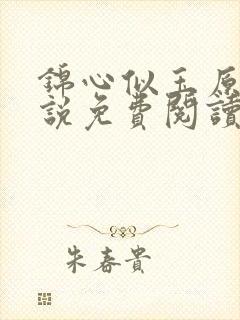 錦心似玉原
說免費閱讀
朱春貴